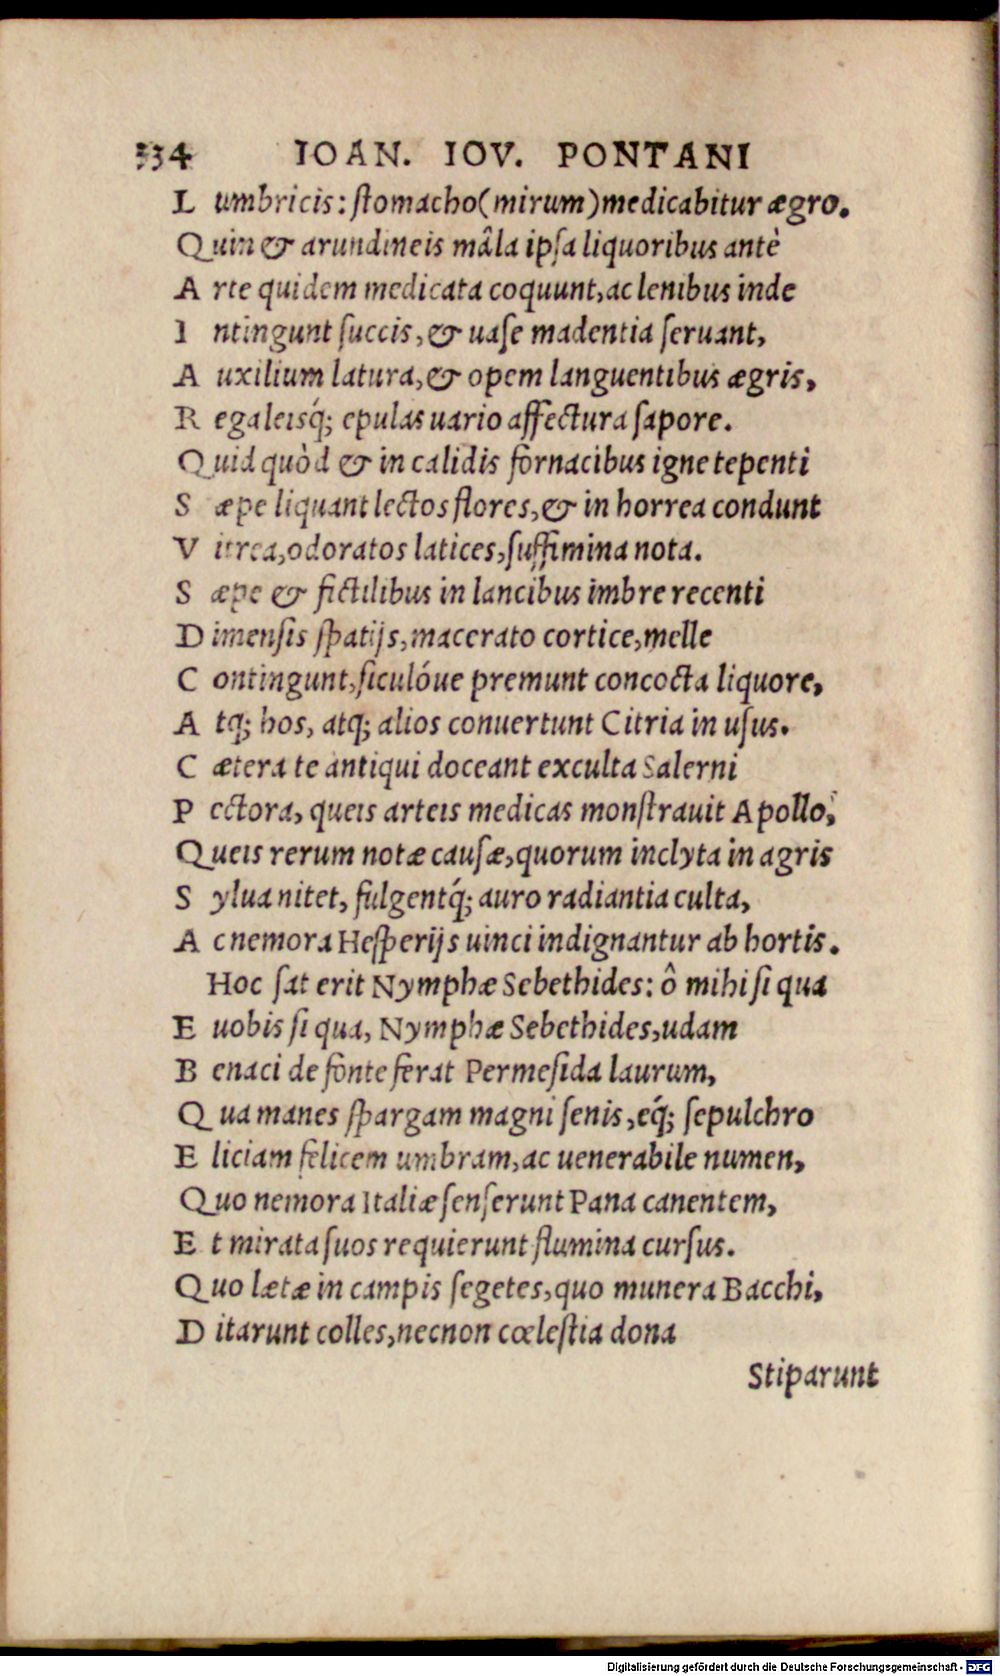 334 IOAN. IOV. PONTANI
L umbricis: ſtomacho(mirum)medicabitur ægro.
Quin & arundineis mâla ipſa liquoribus antè
A rte quidem medicata coquunt,ac lenibus inde
I ntingunt ſuccis,& uaſe madentia ſeruant,
A uxilium latura,& opem languentibus ægris,
R egaleisq́; epulas uario affectura ſapore.
Quid quòd & in calidis fornacibus igne tepenti
S æpe liquant lectos flores,& in horrea condunt
V itrea,odoratos latices,ſuffimina nota.
S æpe & fictilibus in lancibus imbre recenti
D imenſis ſpatijs,macerato cortice,melle
C ontingunt,ſiculóue premunt concocta liquore,
A tq; hos, atq; alios conuertunt Citria in uſus.
C ætera te antiqui doceant exculta Salerni
P ectora, queis arteis medicas monſtrauit Apollo,
Queis rerum notæ cauſæ,quorum inclyta in agris
S ylua nitet, fulgentq́; auro radiantia culta,
A c nemora Heſperijs uinci indignantur ab hortis.
Hoc ſat erit Nymphæ Sebethides: ô mihi ſi qua
E uobis ſi qua, Nymphæ Sebethides,udam
B enaci de fonte ferat Permeſida laurum,
Q ua manes ſpargam magni ſenis,eq́; ſepulchro
E liciam felicem umbram,ac uenerabile numen,
Quo nemora Italiæ ſenſerunt Pana canentem,
E t mirata ſuos requierunt flumina curſus.
Quo lætæ in campis ſegetes,quo munera Bacchi,
D itarunt colles,necnon cœleſtia dona
Stiparunt
Digitalisierung gefördert durch die Deutsche Forschungsgemeinschaft - DFG